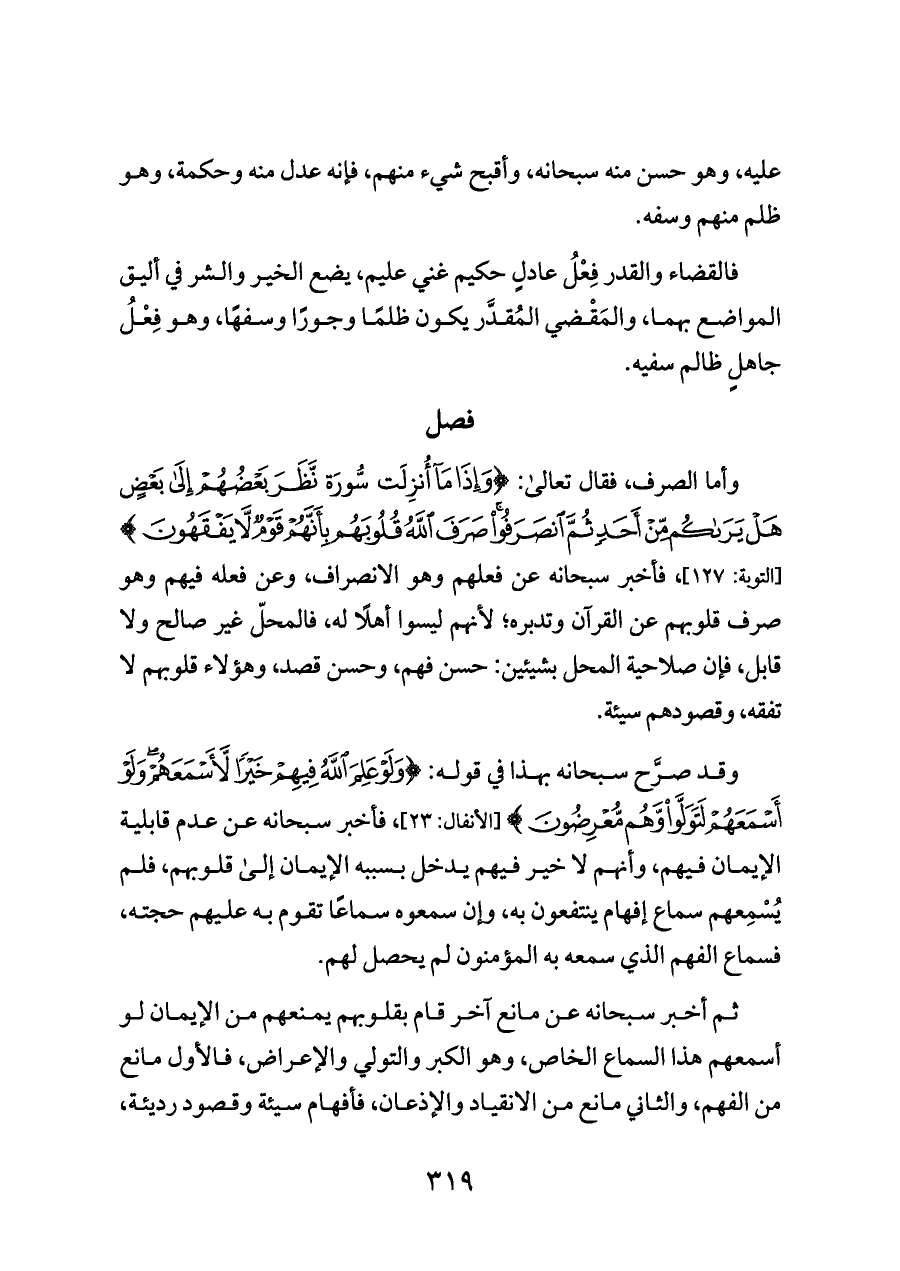 عليه، وهو حسن منه سبحانه، وأقبح شيء منهم، فإنه عدل منه وحكمة، وهو
ظلم منهم وسفه.
فالقضاء والقدر فِعْلُ عادلٍ حكيم غني عليم، يضع الخير والشر في أليق
المواضع بهما، والمَقْضي المُقدَّر يكون ظلمًا وجورًا وسفهًا، وهو فِعْلُ
جاهلٍ ظالم سفيه.
فصل
وأما الصرف، فقال تعالىٰ: ﴿وَإِذَا مَآ أُنزِلَتْ سُورَةٌ نَّظَرَ بَعْضُهُمْ إِلَىٰ بَعْضٍ
هَلْ يَرَىٰكُم مِّنْ أَحَدٍ ثُمَّ ٱنصَرَفُوا۟ ۚ صَرَفَ ٱللَّهُ قُلُوبَهُم بِأَنَّهُمْ قَوْمٌ لَّا يَفْقَهُونَ﴾
[التوبة: ١٢٧]، فأخبر سبحانه عن فعلهم وهو الانصراف، وعن فعله فيهم وهو
صرف قلوبهم عن القرآن وتدبره؛ لأنهم ليسوا أهلًا له، فالمحلّ غير صالح ولا
قابل، فإن صلاحية المحل بشيئين: حسن فهم، وحسن قصد، وهؤلاء قلوبهم لا
تفقه، وقصودهم سيئة.
وقد صرَّح سبحانه بهذا في قوله: ﴿وَلَوْ عَلِمَ ٱللَّهُ فِيهِمْ خَيْرًا لَّأَسْمَعَهُمْ ۖ وَلَوْ
أَسْمَعَهُمْ لَتَوَلَّوا۟ وَّهُم مُّعْرِضُونَ﴾ [الأنفال: ٢٣]، فأخبر سبحانه عن عدم قابلية
الإيمان فيهم، وأنهم لا خير فيهم يدخل بسببه الإيمان إلىٰ قلوبهم، فلم
يُسْمِعهم سماع إفهام ينتفعون به، وإن سمعوه سماعًا تقوم به عليهم حجته،
فسماع الفهم الذي سمعه به المؤمنون لم يحصل لهم.
ثم أخبر سبحانه عن مانع آخر قام بقلوبهم يمنعهم من الإيمان لو
أسمعهم هذا السماع الخاص، وهو الكبر والتولي والإعراض، فالأول مانع
من الفهم، والثاني مانع من الانقياد والإذعان، فأفهام سيئة وقصود رديئة،
٣١٩